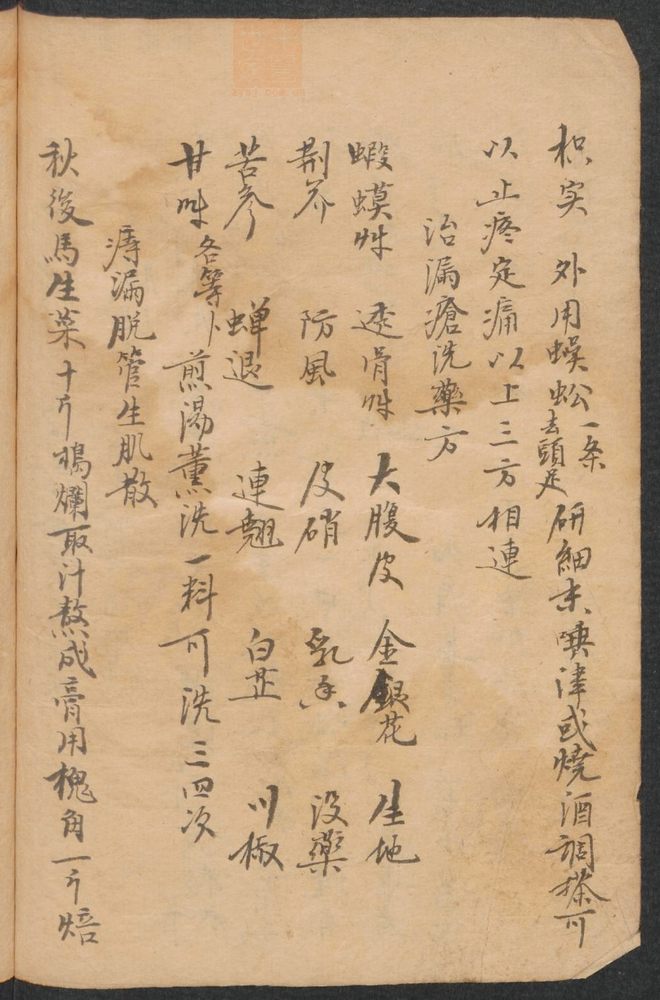 枳实 外用蜈蚣一条去頭足 研細末唾津或燒酒調搽可
以止疼定痛以上三方相連
治漏瘡洗藥方
蝦蟆艸 透骨艸 大腹皮 金銀花 生地
荆芥 防風 皮硝 乳香 没藥
苦參 蝉退 連翹 白芷 川椒
甘艸 各等卜 煎湯薰洗一料可洗三四次
痔漏脱管生肌散
秋後馬生菜十斤搗爛取汁熬成膏用槐角一斤焙